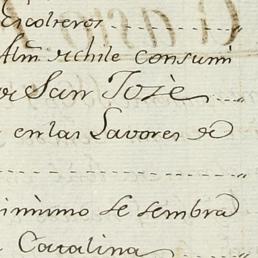 Escolteros
Alm. de chile consumi
San Josè
en las Lavores de
inimo se sembra
Catalina